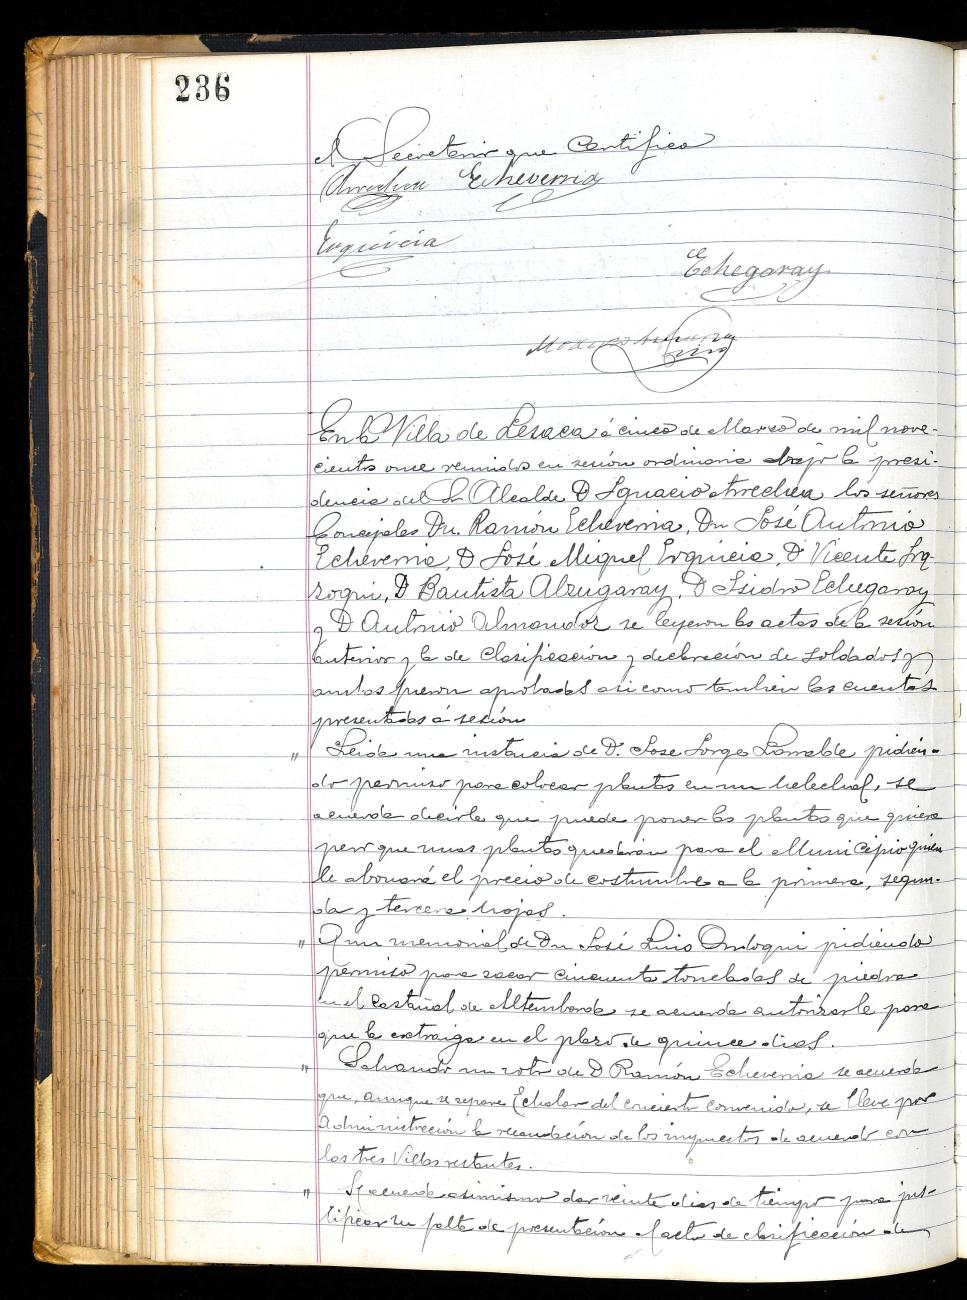 236
el Secretario que Certifico
Arrechea Echeverria
Erquicia
Echegaray
En la Villa de Lesaca á cinco de Marzo de mil nove-
cientos once reunidos en sesión ordinaria bajo la presi-
dencia del Sr Alcalde D Ignacio Arrechea los señores
Concejales Dn. Ramón Echeverria, Dn José Antonio
Echeverria, D José Miguel Erquicia, D Vicente Iri-
zoqui, D Bautista Alzugaray, D Isidro Echegaray
y D Antonio Almandoz se leyeron las actas de la sesión
anterior y la de clasificación y declaración de soldados y
ambas fueron aprobadas asi como tambien las cuentas
presentadas á sesión
" Leida una instancia de D. Jose Jorge Larralde pidien-
do permiso para colocar plantas en un helechal, se
acuerda decirle que puede poner las plantas que quiera
pero que unas plantas quedarán para el Municipio quien
le abonará el precio de costumbre a la primera, segun-
da y tercera hojas.
" A un memorial de Dn José Luis Ordoqui pidiendo
permiso para sacar cincuenta toneladas de piedra
en el castañal de se acuerda autorizarle para
que la extraiga en el plazo de quince dias.
" Salvando un voto de D Ramón Echeverria se acuerda
que, aunque se separe Echalar del concierto convenido, se lleve por
administración la recaudación de los impuestos de acuerdo con
las tres Villas restantes.
" Se acuerda asimismo dar veinte dias de tiempo para jus-
tificar su falta de presentación al acto de clasificación de